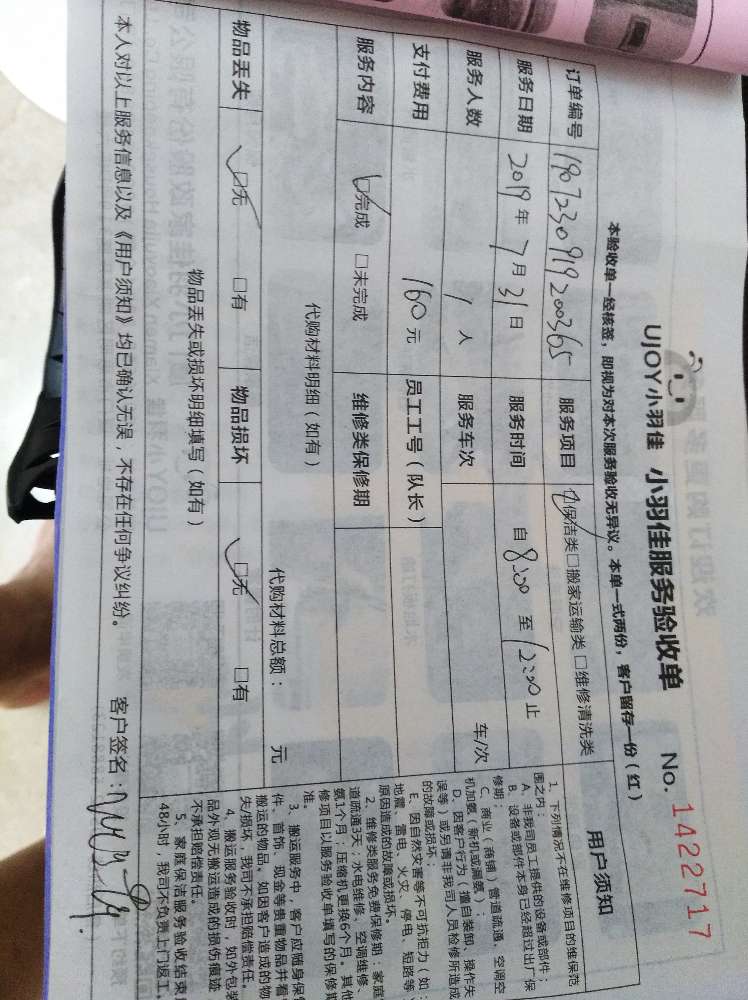 UJOY小羽佳 小羽佳服务验收单 No. 1422717
本验收单一经核签，即视为对本次服务验收无异议。本单一式两份，客户留存一份（红）
订单编号 190723091920365 服务项目 ☑保洁类□搬家运输类 □维修清洗类
服务日期 2019 年 7 月 31 日 服务时间 自 8:00 至 12:00 止
服务人数 1 人 服务车次 车/次
支付费用 160 元 员工工号（队长）
服务内容 ☑完成 □未完成 维修类保修期
代购材料明细（如有） 代购材料总额： 元
物品丢失 ☑无 □有 物品损坏 ☑无 □有
物品丢失或损坏明细填写（如有）
本人对以上服务信息以及《用户须知》均已确认无误，不存在任何争议纠纷。 客户签名：
用户须知
1、下列情况不在维修项目的维保范
围之内：
A、非我司员工提供的设备或部件；
B、设备或部件本身已经超过出厂保
修期；
C、商业（商铺）管道疏通、空调空
机加氨（新机或漏氨）；
D、因客户行为（擅自装卸、操作失
误等）或另请非我司人员检修所造成
的故障或损坏；
E、因自然灾害等不可抗拒力（如：
地震、雷电、火灾、停电、短路等
原因造成的故障或损坏。
2、维修类服务免费保修期：家庭
道疏通3天；水电维修、空调维修、
氨1个月；压缩机更换6个月。其他
修项目以服务验收单填写的保修期
准。
3、搬运服务中，客户应随身保管
件、首饰、现金等贵重物品并看
搬运的物品。如因客户造成的物
失损坏，我司不承担赔偿责任。
4、搬运服务验收时，如外包装
品外观无搬运造成的损伤痕迹
不承担赔偿责任。
5、家庭保洁服务验收结束
48小时，我司不负责上门返工。